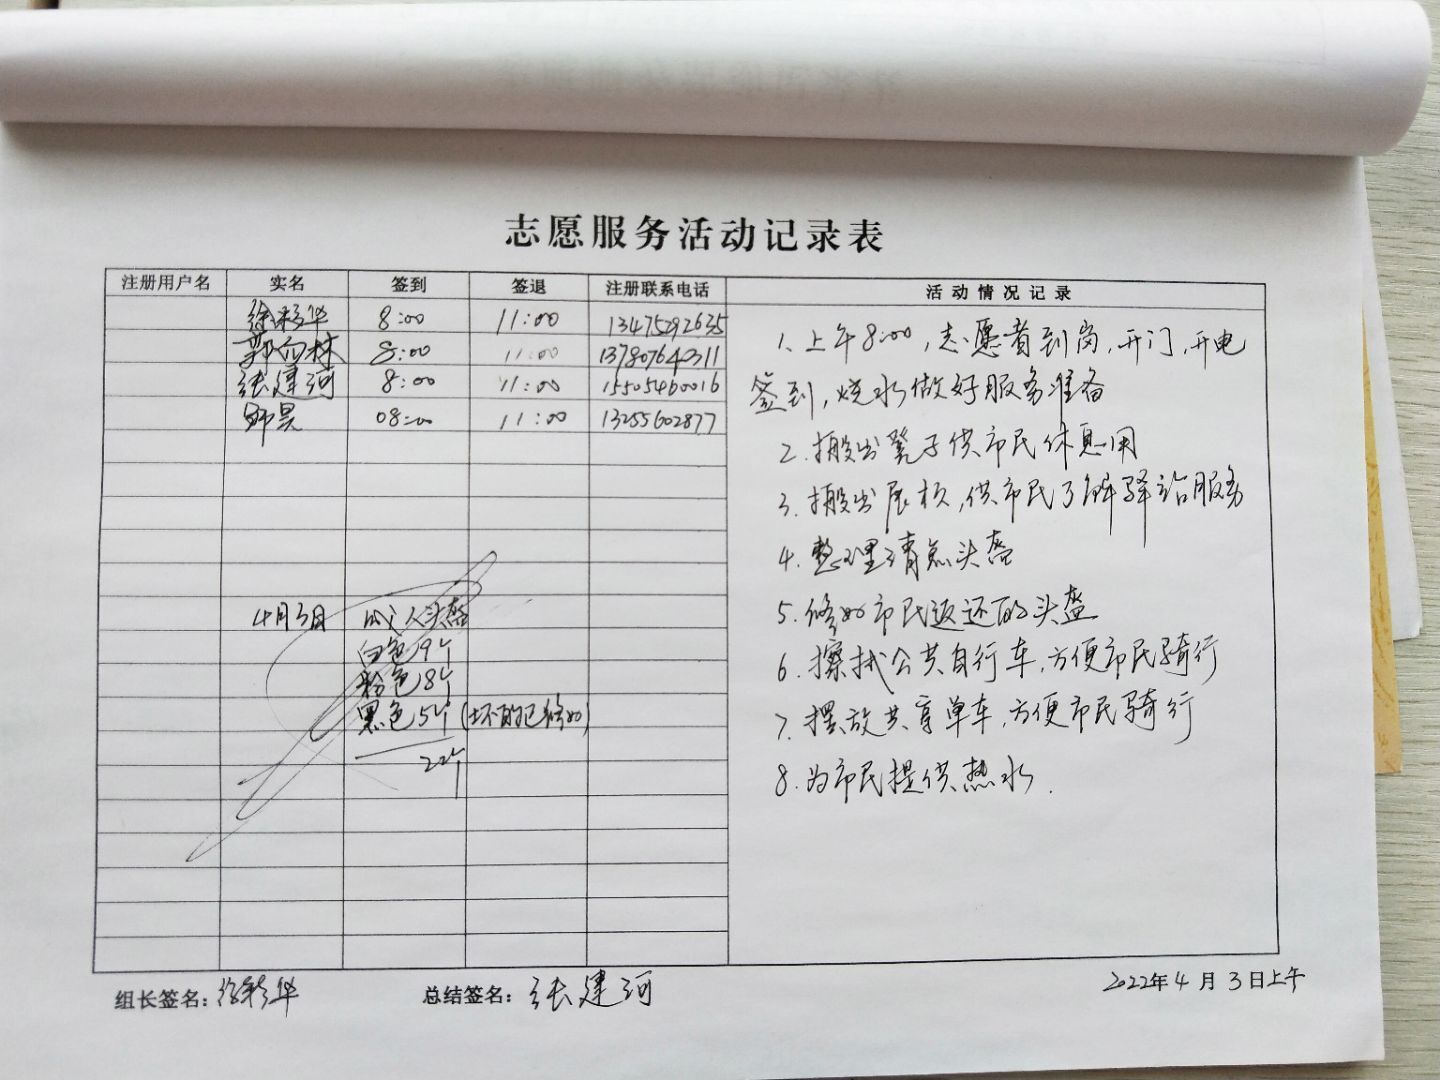 志愿服务活动记录表
注册用户名 实名 签到 签退 注册联系电话 活动情况记录
徐彩华 8:00 11:00 13475292635
郭向林 8:00 11:00 13780764311
张建河 8:00 11:00 15505460016
昊 08:00 11:00 13255602877
1、上午8:00,志愿者到岗,开门,开电
签到,烧水做好服务准备
2.搬出凳子供市民休息用
3.搬出展板,供市民了解驿站服务
4.整理清点头盔
5.修好市民返还的头盔
6.擦拭公共自行车,方便市民骑行
7.摆放共享单车,方便市民骑行
8.为市民提供热水.
4月3日 头盔
白色9个
粉色8个
黑色5个(坏的已修好)
22个
组长签名:徐彩华 总结签名:张建河 2022年4月3日上午